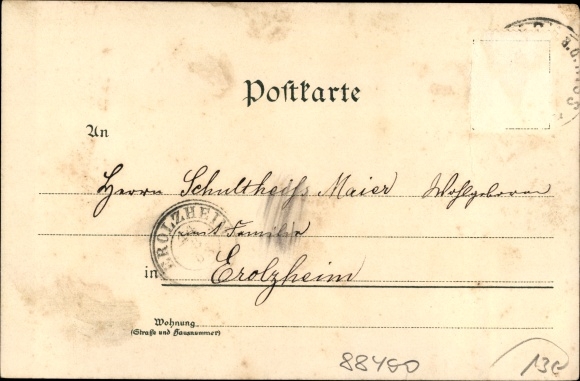 Postkarte
An
Herrn Schultheiß Maier Wohlgeboren
mit Familie
EROLZHEIM
in Erolzheim
Wohnung
(Straße und Hausnummer)
88460
13€